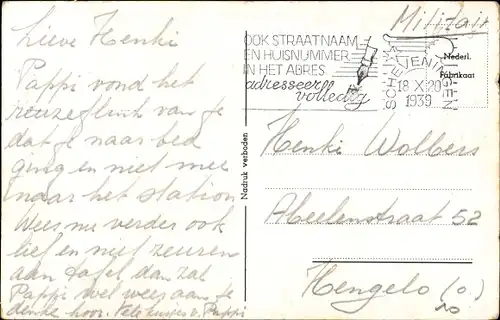 Lieve Henki
Pappi vond het
reuzeflink van je
dat je naar bed
ging en niet mee
naar het station
Wees nu verder ook
lief en niet zeuren
aan tafel dan zal
Pappi wel weer aan je
denke hoor. Tele kusjes v. Pappi
Nadruk verboden
Militair
OOK STRAATNAAM
EN HUISNUMMER
IN HET ADRES
adresseer
volledig
SCHEVENINGEN
18 X 20
1939
Nederl.
Fabrikaat
Henki Wolbers
Abeelenstraat 52
Hengelo (O.)